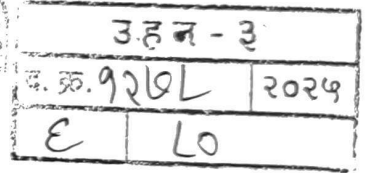 उ.ह.न - ३
द. क्र. १२७८ २०२५
६ ८०